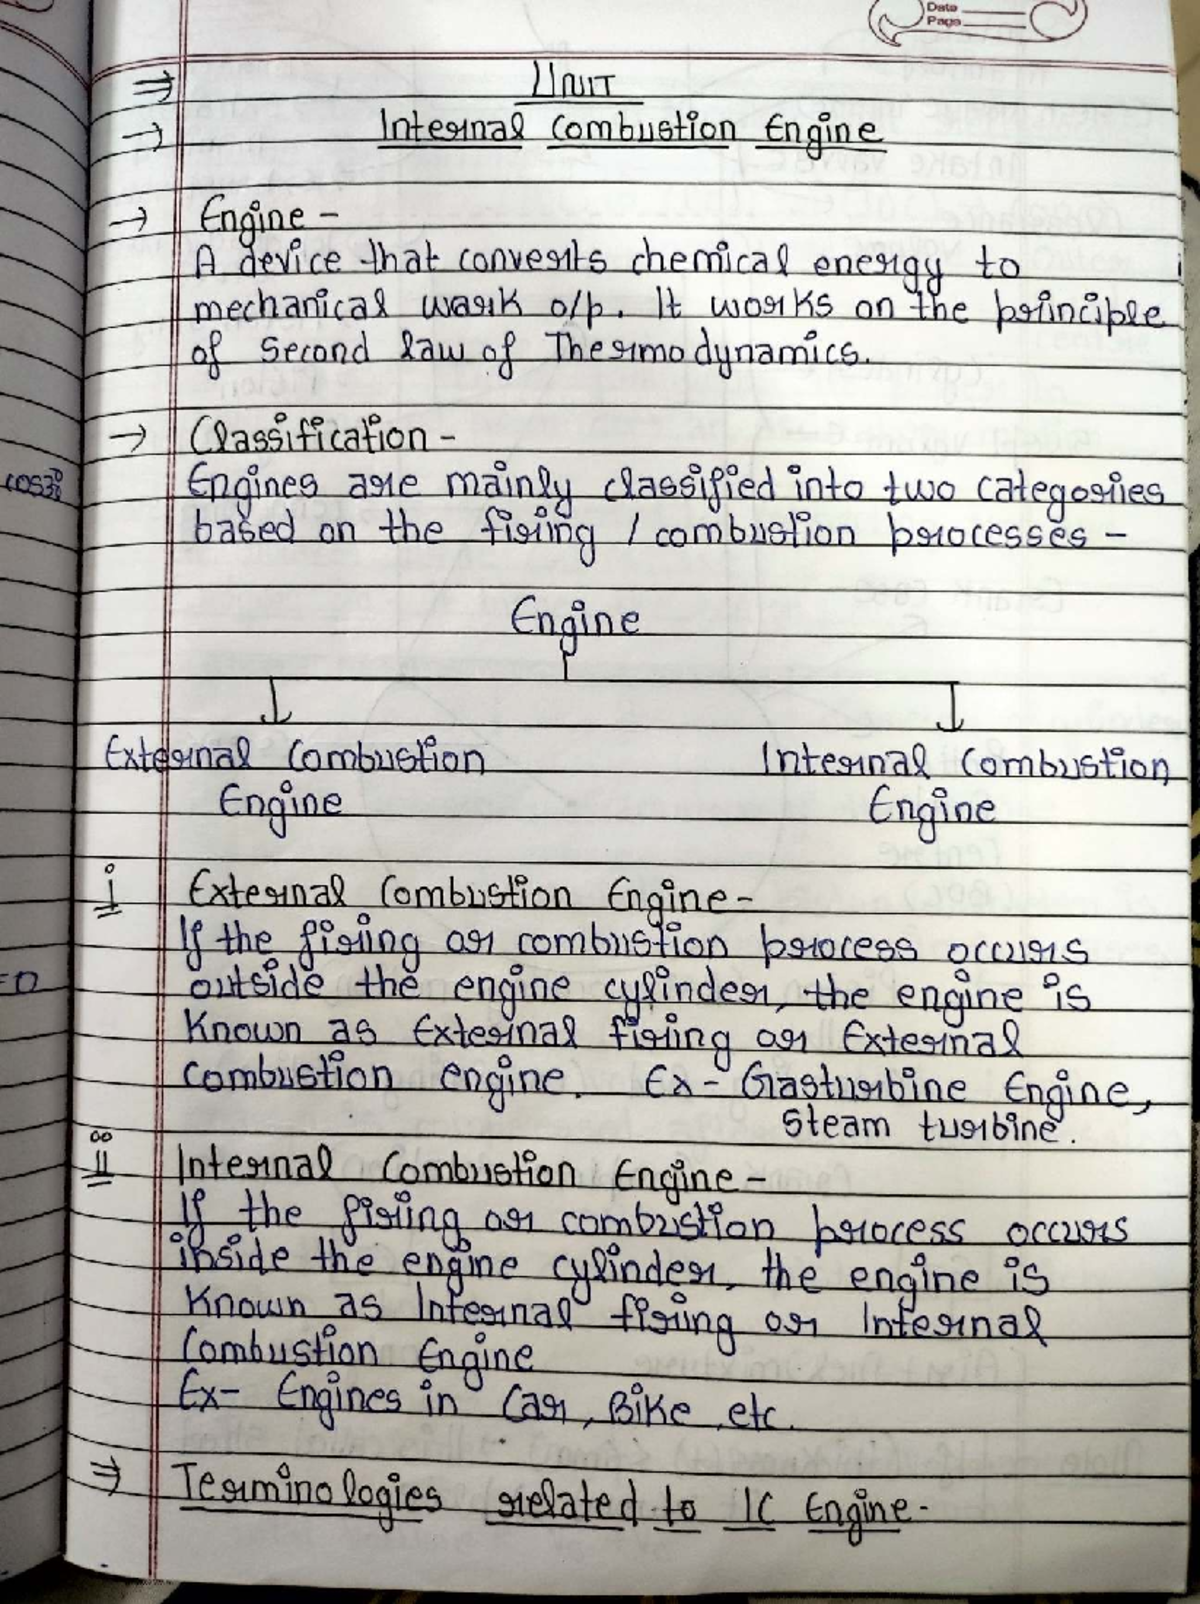 Date
Page
⇒ UNIT
→ Internal Combustion Engine
→ Engine -
A device that converts chemical energy to
mechanical work o/p. It works on the principle
of Second law of Thermodynamics.
→ Classification -
Engines are mainly classified into two categories
based on the firing / combustion processes -
Engine
External Combustion Engine
Internal Combustion Engine
i External Combustion Engine -
If the firing or combustion process occurs
outside the engine cylinder, the engine is
Known as External firing or External
Combustion engine. Ex - Gasturbine Engine,
Steam turbine.
ii Internal Combustion Engine -
If the firing or combustion process occurs
inside the engine cylinder, the engine is
Known as Internal firing or Internal
Combustion Engine
Ex- Engines in Car, Bike etc.
⇒ Terminologies related to IC Engine -